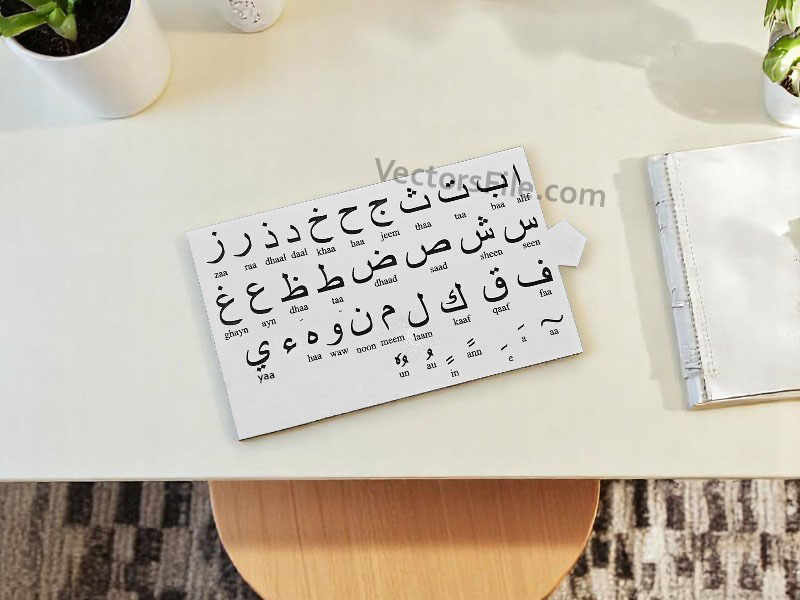 VectorsFile.com
ا ب ت ث ج ح خ د ذ ر ز
alif baa taa thaa jeem haa khaa daal dhaal raa zaa
س ش ص ض ط ظ ع غ
seen sheen saad dhaad taa dhaa ayn ghayn
ف ق ك ل م ن وَ هَ ء ي
faa qaaf kaaf laam meem noon waw haa yaa
aa a e ann in au un